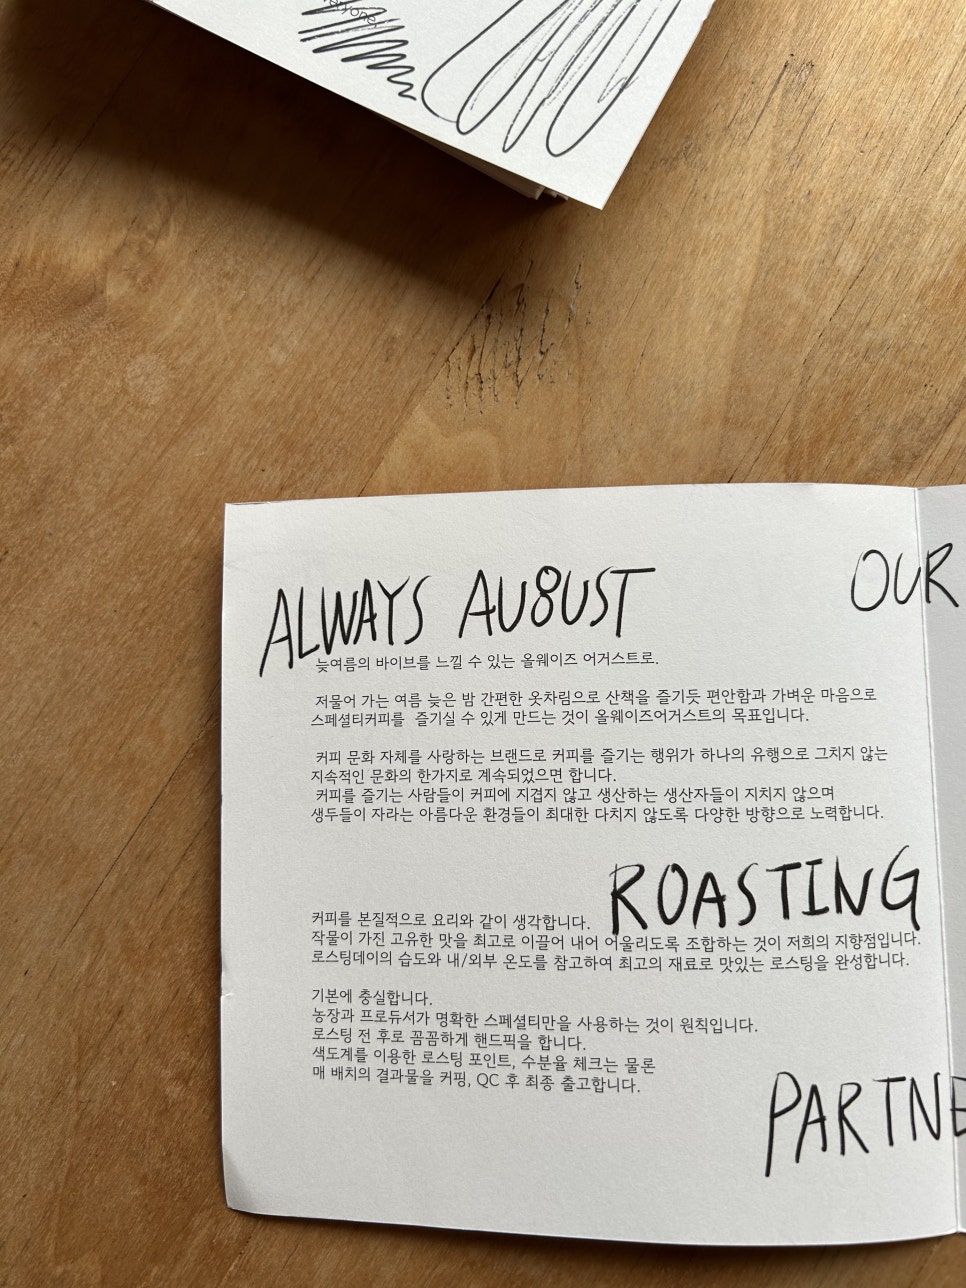 ALWAYS AUGUST
늦여름의 바이브를 느낄 수 있는 올웨이즈 어거스트로.
저물어 가는 여름 늦은 밤 간편한 옷차림으로 산책을 즐기듯 편안함과 가벼운 마음으로
스페셜티커피를 즐기실 수 있게 만드는 것이 올웨이즈어거스트의 목표입니다.
커피 문화 자체를 사랑하는 브랜드로 커피를 즐기는 행위가 하나의 유행으로 그치지 않는
지속적인 문화의 한가지로 계속되었으면 합니다.
커피를 즐기는 사람들이 커피에 지겹지 않고 생산하는 생산자들이 지치지 않으며
생두들이 자라는 아름다운 환경들이 최대한 다치지 않도록 다양한 방향으로 노력합니다.
ROASTING
커피를 본질적으로 요리와 같이 생각합니다.
작물이 가진 고유한 맛을 최고로 이끌어 내어 어울리도록 조합하는 것이 저희의 지향점입니다.
로스팅데이의 습도와 내/외부 온도를 참고하여 최고의 재료로 맛있는 로스팅을 완성합니다.
기본에 충실합니다.
농장과 프로듀서가 명확한 스페셜티만을 사용하는 것이 원칙입니다.
로스팅 전 후로 꼼꼼하게 핸드픽을 합니다.
색도계를 이용한 로스팅 포인트, 수분율 체크는 물론
매 배치의 결과물을 커핑, QC 후 최종 출고합니다.
OUR
PARTNE